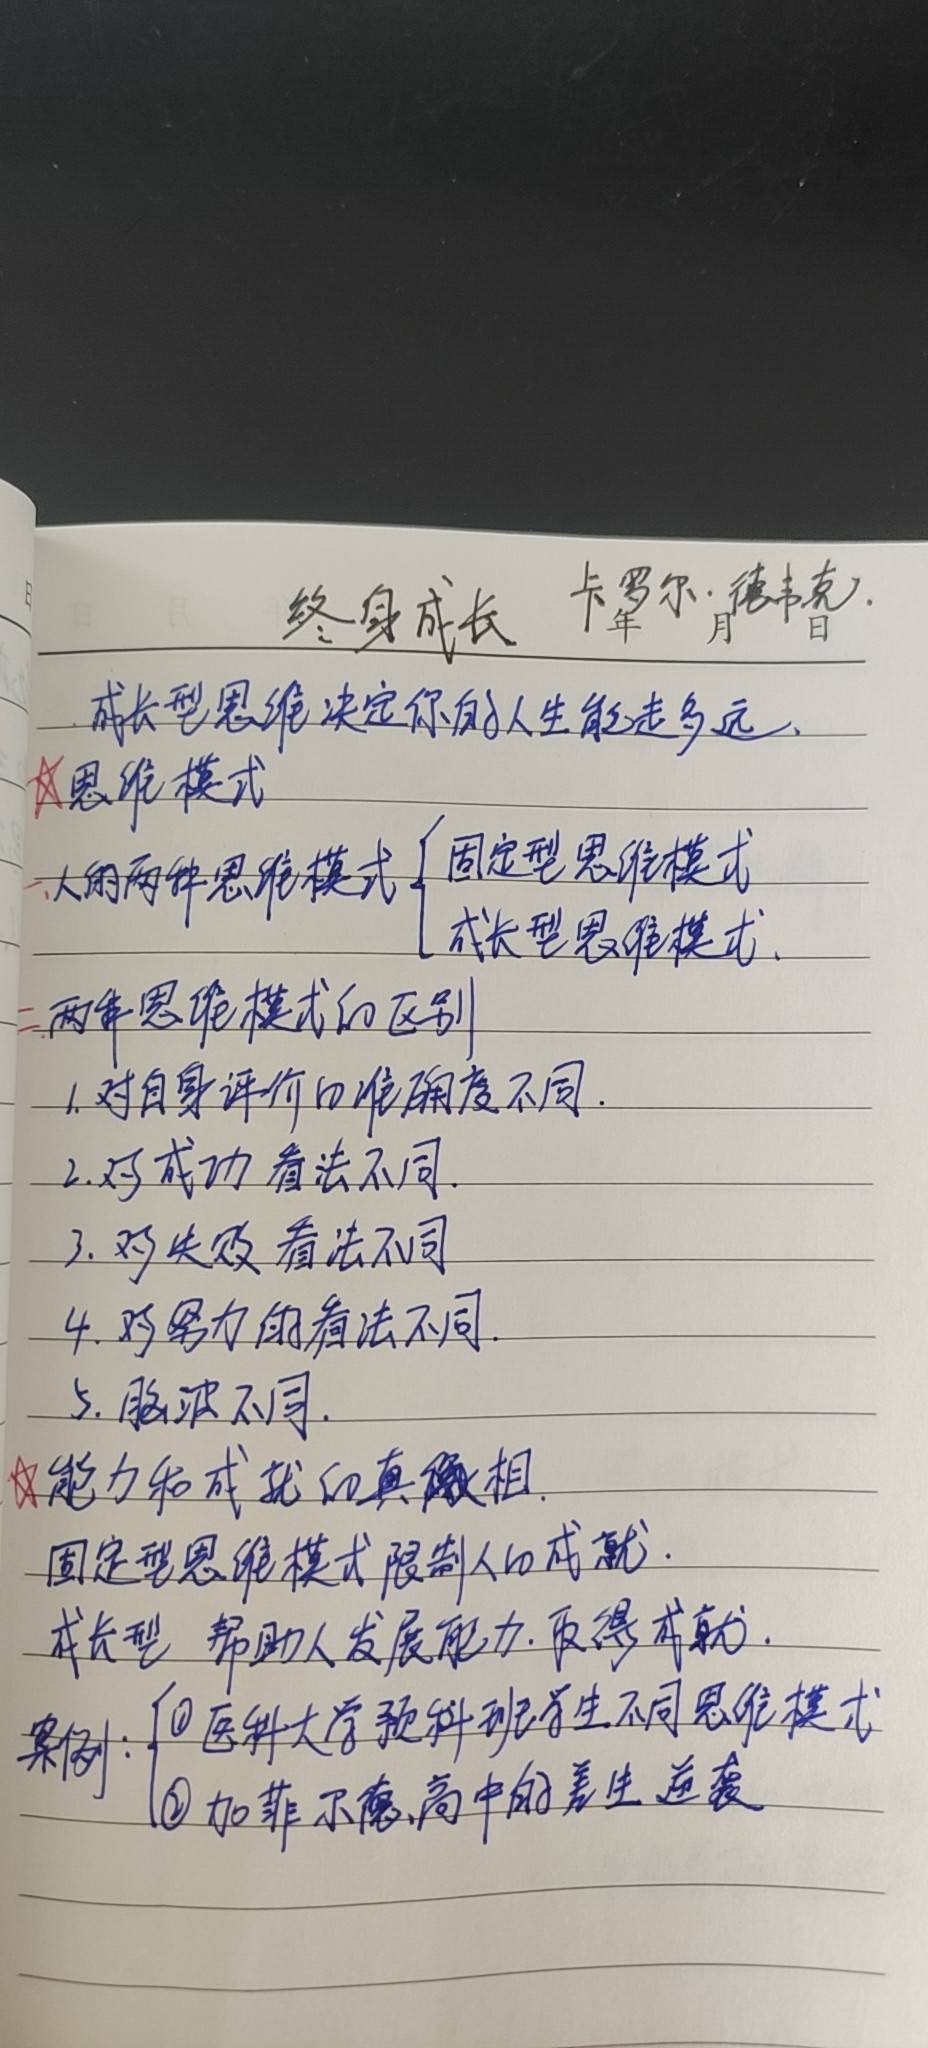 终身成长 卡罗尔·德韦克.
年 月 日
成长型思维决定你的人生能走多远、
☆思维模式
一、人的两种思维模式{固定型思维模式
成长型思维模式、
二、两种思维模式的区别
1.对自身评价的准确度不同.
2.对成功看法不同.
3.对失败看法不同
4.对努力的看法不同.
5.脑波不同.
☆能力和成就的真相.
固定型思维模式限制人的成就.
成长型 帮助人发展能力.取得成就.
案例:{①医科大学预科班学生不同思维模式
②加菲尔德、高中的差生逆袭